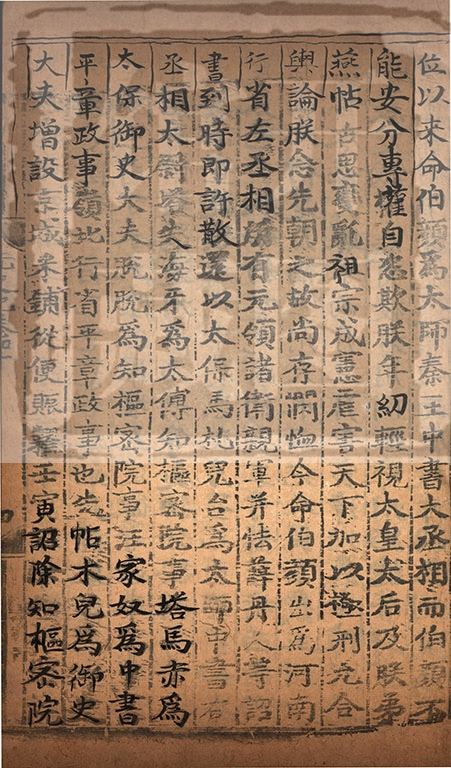 位以来命伯顏為太師秦王中書大丞相而伯顏不
能安分專權自恣欺朕年幼輕視太皇太后及朕弟
燕帖古思變亂祖宗成憲虐害天下加以極刑允合
輿論朕念先朝之故尚存憫恤今命伯顏出為河南
行省左丞相所有元領諸衛親軍并怯薛丹人等詔
書到時即許散還以太保馬札兒台為太師中書右
丞相太尉塔失海牙為太傅知樞密院事塔馬赤為
太保御史大夫脫脫為知樞密院事汪家奴為中書
平章政事嶺北行省平章政事也先帖木兒為御史
大夫增設京城米鋪從便賑糶壬寅詔除知樞密院